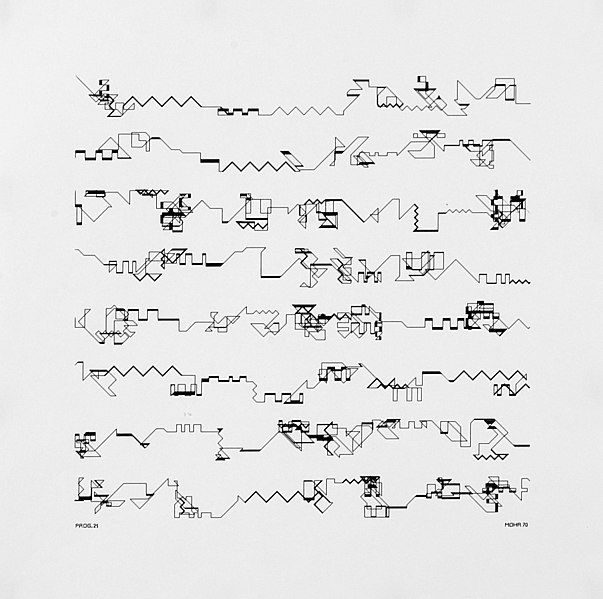 PROG.21
MOHR 70